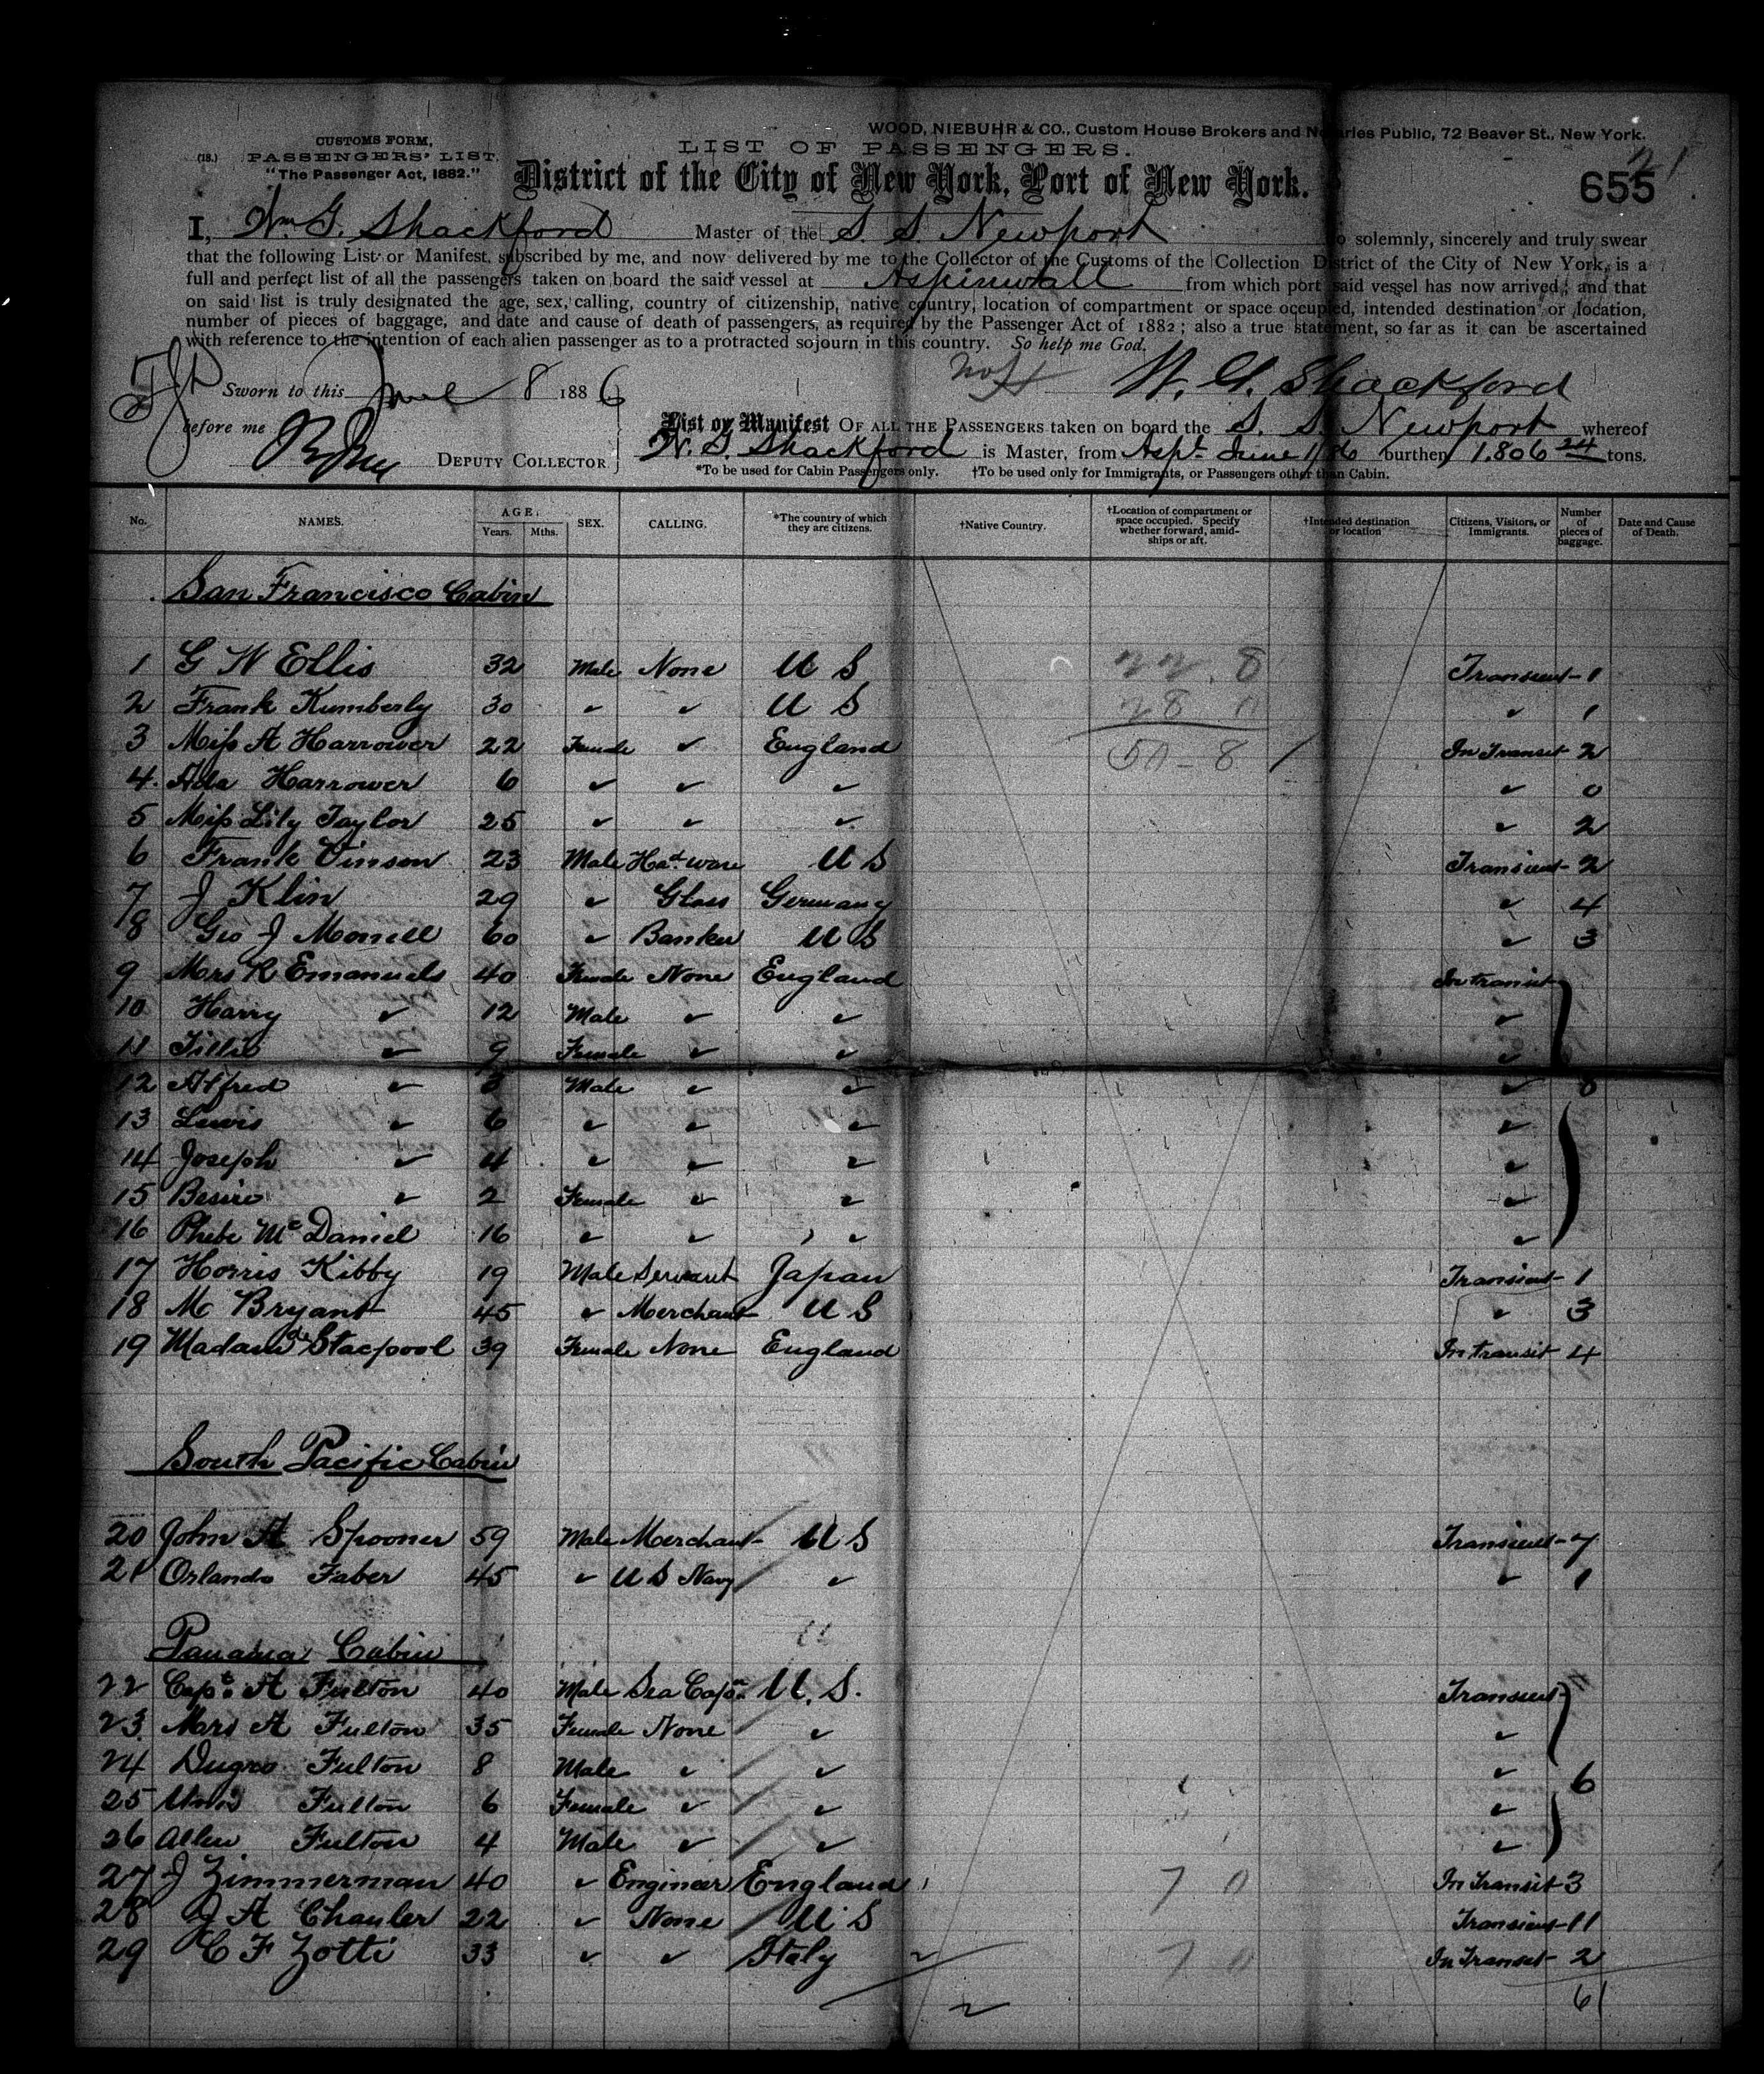 WOOD, NIEBUHR & CO., Custom House Brokers and Notaries Public, 72 Beaver St., New York.
CUSTOMS FORM,
(18.) PASSENGERS' LIST.
"The Passenger Act, 1882."
LIST OF PASSENGERS.
District of the City of New York, Port of New York.
21
655
I, Wm G. Shackford Master of the S. S. Newport do solemnly, sincerely and truly swear
that the following List or Manifest, subscribed by me, and now delivered by me to the Collector of the Customs of the Collection District of the City of New York, is a
full and perfect list of all the passengers taken on board the said vessel at Aspinwall from which port said vessel has now arrived; and that
on said list is truly designated the age, sex, calling, country of citizenship, native country, location of compartment or space occupied, intended destination or location,
number of pieces of baggage, and date and cause of death of passengers, as required by the Passenger Act of 1882; also a true statement, so far as it can be ascertained
with reference to the intention of each alien passenger as to a protracted sojourn in this country. So help me God.
Sworn to this June 8 1886
W. G. Shackford
before me
DEPUTY COLLECTOR
List or Manifest OF ALL THE PASSENGERS taken on board the S. S. Newport whereof
W. G. Shackford is Master, from Aspl. June 1/86 burthen 1.806 24 tons.
*To be used for Cabin Passengers only. †To be used only for Immigrants, or Passengers other than Cabin.
No. NAMES. AGE. Years. Mths. SEX. CALLING. *The country of which they are citizens. †Native Country. †Location of compartment or space occupied. Specify whether forward, amidships or aft. †Intended destination or location Citizens, Visitors, or Immigrants. Number of pieces of baggage. Date and Cause of Death.
San Francisco Cabin
1 G W Ellis 32 Male None U S 22.8 Transient 1
2 Frank Kumberly 30 ✓ ✓ U S 28 0 ✓ 1
3 Miss A Harrower 22 Female ✓ England 50-8 In Transit 2
4. Ada Harrower 6 ✓ ✓ ✓ ✓ 0
5 Miss Lily Taylor 25 ✓ ✓ ✓ ✓ 2
6 Frank Vinson 23 Male Hadware U S Transient 2
7 J Klin 29 ✓ Glass Germany ✓ 4
8 Geo J Morrell 60 ✓ Banker U S ✓ 3
9 Mrs R Emanuels 40 Female None England In transit
10 Harry ✓ 12 Male ✓ ✓ ✓
11 Tillie ✓ 9 Female ✓ ✓ ✓
12 Alfred ✓ Male ✓ ✓ ✓ 8
13 Lewis ✓ 6 ✓ ✓ ✓ ✓
14 Joseph ✓ 4 ✓ ✓ ✓ ✓
15 Bessie ✓ 2 Female ✓ ✓ ✓
16 Phebe McDaniel 16 ✓ ✓ ✓ ✓
17 Horris Kibby 19 Male Servant Japan Transient 1
18 M Bryant 45 ✓ Merchant U S ✓ 3
19 Madam de Stacpool 39 Female None England In transit 4
South Pacific Cabin
20 John A Spooner 59 Male Merchant U S Transient 7
21 Orlando Faber 45 ✓ U S Navy ✓ ✓ 1
Panama Cabin
22 Capt. A Fulton 40 Male Sea Capt. U. S. Transient
23. Mars A Fulton 35 Female None ✓ ✓
24 Dugro Fulton 8 Male ✓ ✓ ✓ 6
25 Fulton 6 Female ✓ ✓ ✓
26 Allen Fulton 4 Male ✓ ✓ ✓
27 J Zimmerman 40 ✓ Engineer England 7 0 In Transit 3
28 J A Chanler 22 ✓ None U S Transient 11
29 C F Zotti 33 ✓ ✓ Italy 7 0 In Transit 2
61